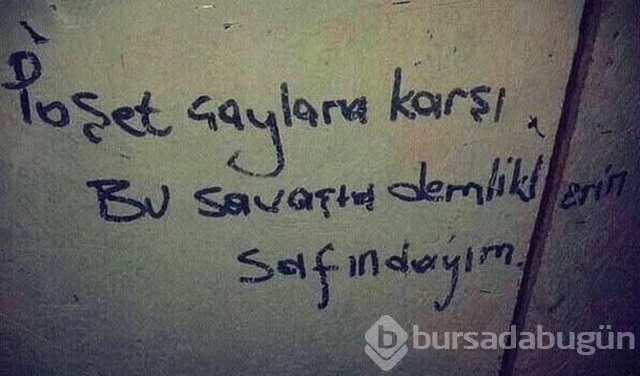 Poşet çaylara karşı
Bu savaşta demliklerin
safındayım.
bursadabugün